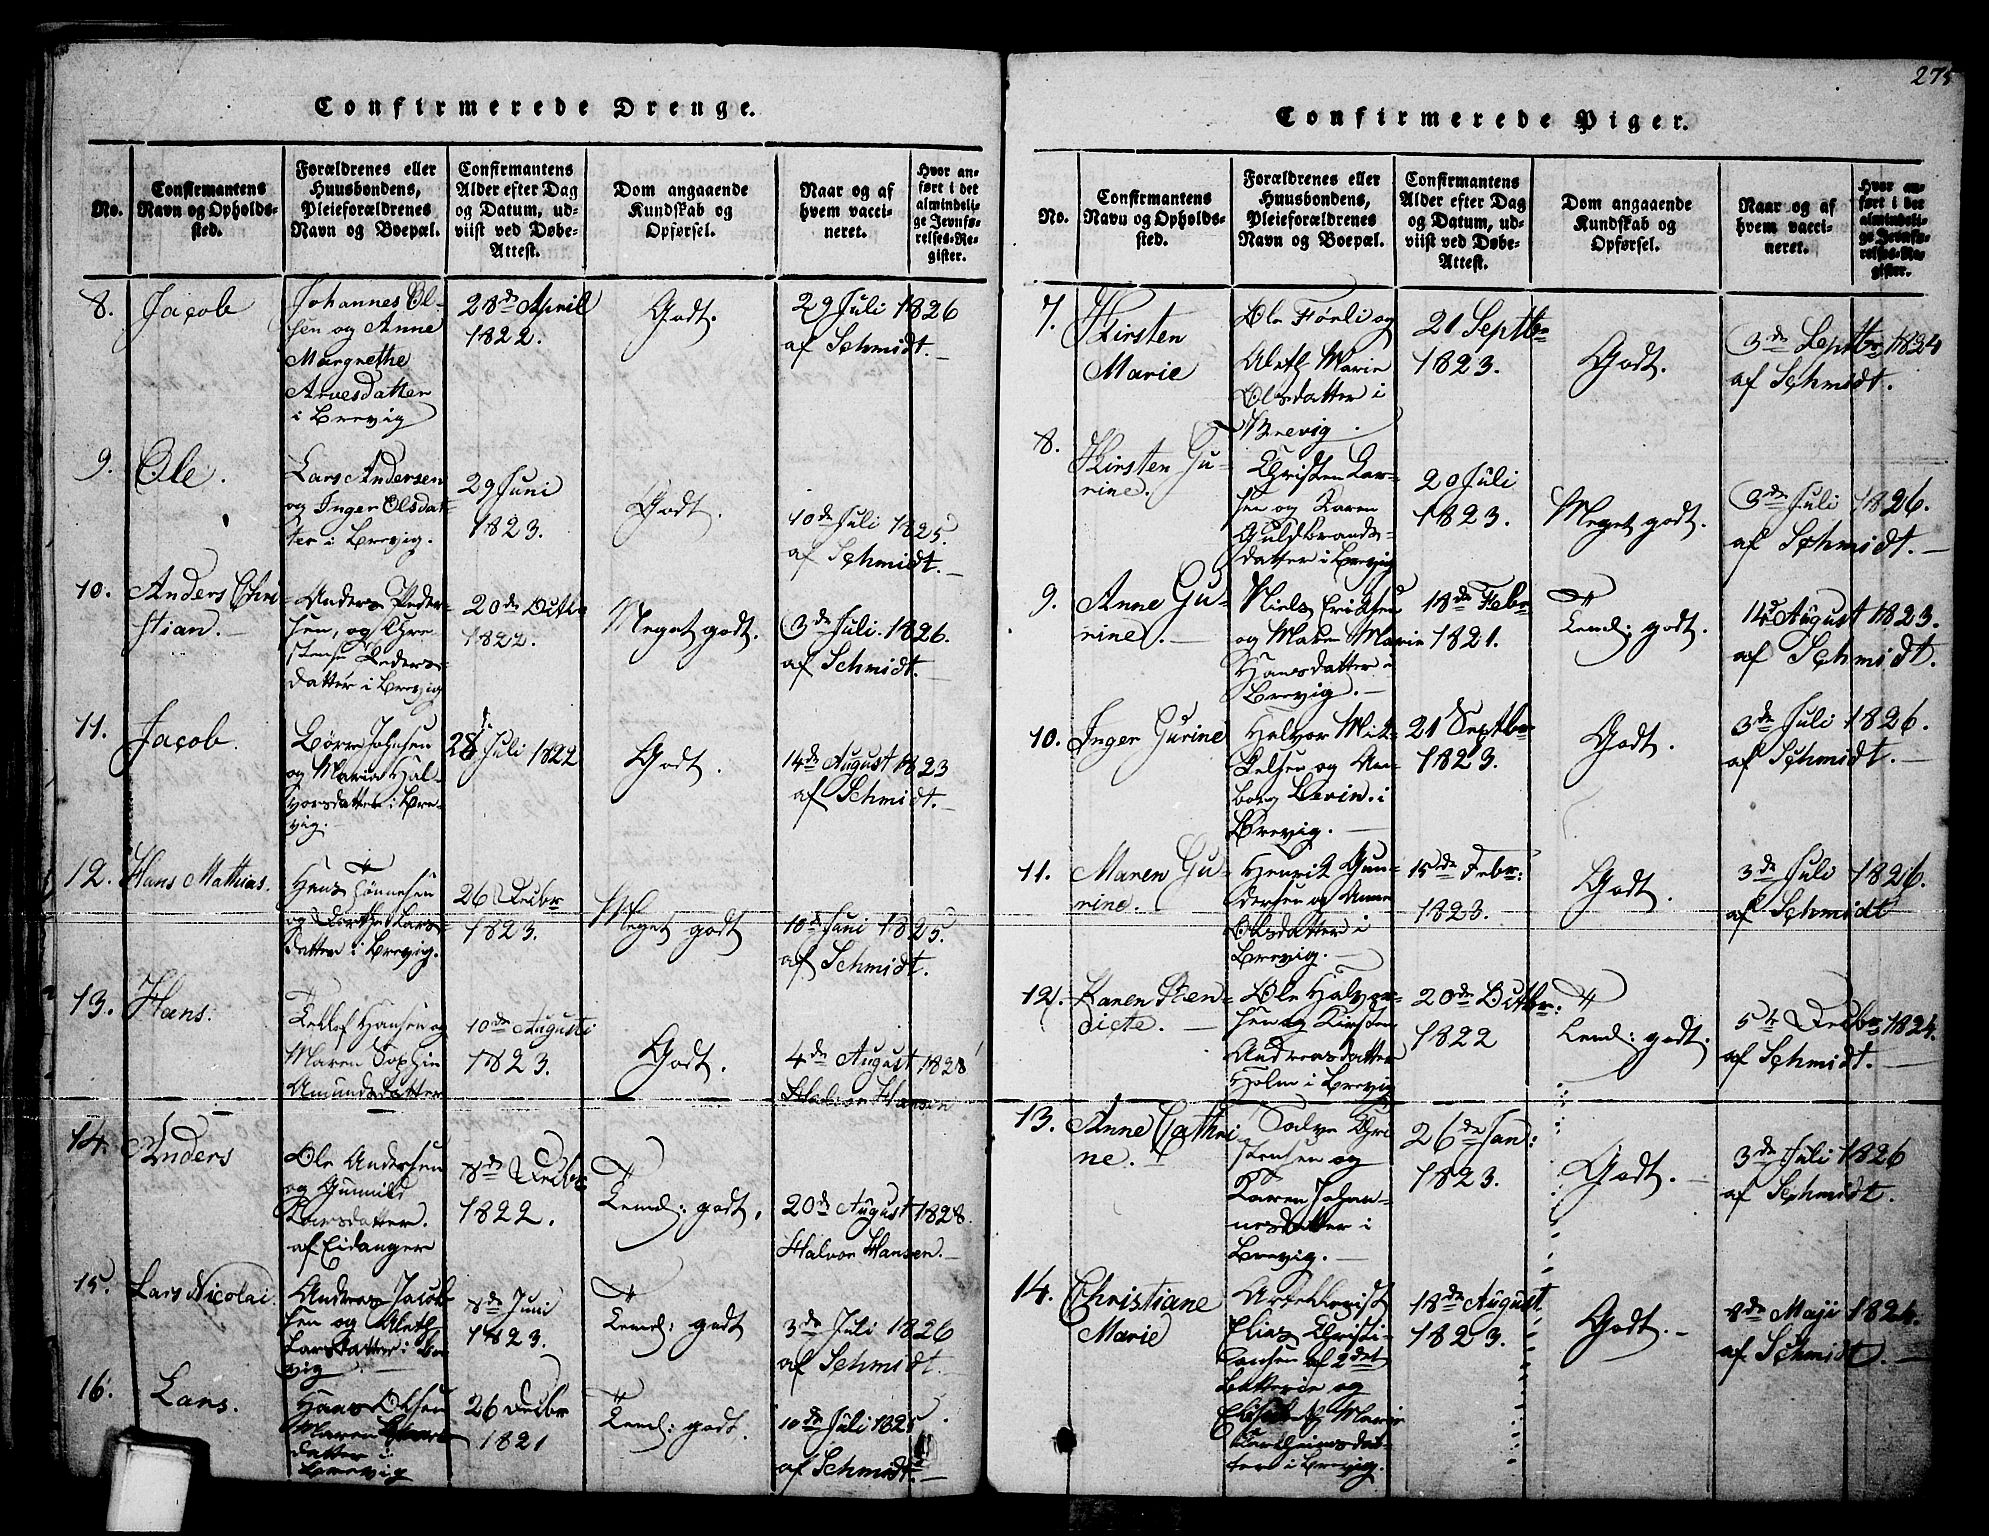 275
Confirmerede Drenge.
No.
Confirmantens
Navn og Opholds-
sted.
Forældrenes eller
Huusbondens,
Pleieforældrenes
Navn og Boepæl.
Confirmantens
Alder efter Dag
og Datum, ud-
viist ved Døbe-
Attest.
Dom angaaende
Kundskab og
Opførsel.
Naar og af
hvem vacci-
neret.
Hvor an-
ført i det
almindeli-
ge Jevnfø-
relses-Re-
gister.
8.
Jacob
Johannes Ol-
sen og Anne
Margrethe
Arvesdatter
i Brevig
28de April
1822.
Godt.
29 Juli 1826
af Schmidt.
9.
Ole.
Lars Andersen
og Inger Olsdat-
ter i Brevig.
29 Juni
1823.
Godt.
10de Juli 1825.
af Schmidt.
10.
Anders Chri-
stian.
Anders Peder-
sen, og Chre-
stense Peders-
datter i Brevig
20de Octbr
1822.
Meget godt.
3de Juli. 1826.
af Schmidt.
11.
Jacob.
Børre Johnsen
og Maria Hal-
vorsdatter i Bre-
vig.
28de Juli 1822
Godt.
14de August 1823
af Schmidt.
12.
Hans Mathias.
Hans Tönnesen
og Dorthe Lars-
datter i Brevig.
26 Decbr
1823.
Meget godt
10de Juni 1825.
af Schmidt.
13.
Hans.
Detlof Hansen og
Maren Sophie
Amundsdatter
10de Augusti
1823.
Godt.
4de August 1828
Halvor Hansen
14.
Anders
Ole Andersen
og Gunnild
Larsdatter.
af Eidanger
8de Decbr
1822.
Temel: godt.
20de August 1828.
Halvor Hansen.
15.
Lars Nicolai.
Andreas Jacob-
sen og Aleth
Larsdatter i Bre-
vig
8de Juni
1823.
Temel: godt
3de Juli 1826
af Schmidt.
16.
Lars.
Hans Olsen
Maren
datter i
Brevig
26 Decbr
1821
Temel: godt.
10de Juli 1825.
af Schmidt.
Confirmerede Piger.
No.
Confirmantens
Navn og Opholds-
sted.
Forældrenes eller
Huusbondens,
Pleieforældrenes
Navn og Boepæl.
Confirmantens
Alder efter Dag
og Datum, ud-
viist ved Døbe-
Attest.
Dom angaaende
Kundskab og
Opførsel.
Naar og af
hvem vacci-
neret.
Hvor an-
ført i det
almindeli-
ge Jevnfø-
relses-Re-
gister.
7.
Kirsten
Marie
Ole Förli og
Aleth Marie
Olsdatter i
Brevig.
21 Septbr
1823.
Godt.
3de Septbr 1824
af Schmidt.
8.
Kirsten Gu-
rine.
Christen Lar-
sen og Karen
Guldbrands-
datter i Brevig
20 Juli
1823.
Meget godt.
3de Juli 1826.
af Schmidt.
9.
Anne Gu-
rine.
Niels Eriksen
og Maren Marie
Hansdatter i
Brevig.
18de Febr
1821.
Temel: godt.
14de August 1823.
af Schmidt.
10.
Inger Gurine
Halvor Mik-
kelsen og An-
borg Levin. i
Brevig.
21 Septbr
1823.
Godt.
3de Juli 1826.
af Schmidt.
11.
Maren Gu-
rine.
Henrik Gun-
dersen og Anne
Olsdatter i
Brevig.
15de Febr:
1823.
Godt.
3de Juli 1826.
af Schmidt
12.
Karen Ben-
dicte.
Ole Halvor-
sen og Kirsten
Andreasdatter
Holm i Brevig
20de Octbr:
1822
Temel: godt.
5te Decbr 1824.
af Schmidt.
13.
Anne Cathri-
ne.
Salve Chri-
stensen og
Karen Johan-
nesdatter i
Brevig.
26de Jan:
1823.
Godt.
3de Juli 1826
af Schmidt.
14.
Christiane
Marie
Artillerist
Elias Christi-
ansen af 2det
Batterie og
Elisabeth Marie
i Brevig.
18de August
1823.
Godt.
8de Maji 1824.
af Schmidt.